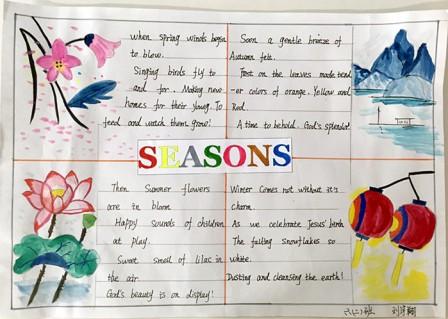 when spring winds begin
to blow.
Singing birds fly to
and for. Making new
homes for their young. To
feed and watch them grow!
Soon a gentle breeze of
Autumn felt.
Fost on the leaves made tend
-er colors of orange. Yellow and
Red.
A time to behold. God's splendor!
SEASONS
Then Summer flowers
are in bloom
Happy sounds of children
at play.
Sweet smell of lilac in
the air
God's beauty is on display!
Winter Comes not without it's
charm.
As we celebrate Jesus' birth
The falling snowflakes so
white.
Dusting and cleansing the earth!
六(二)班